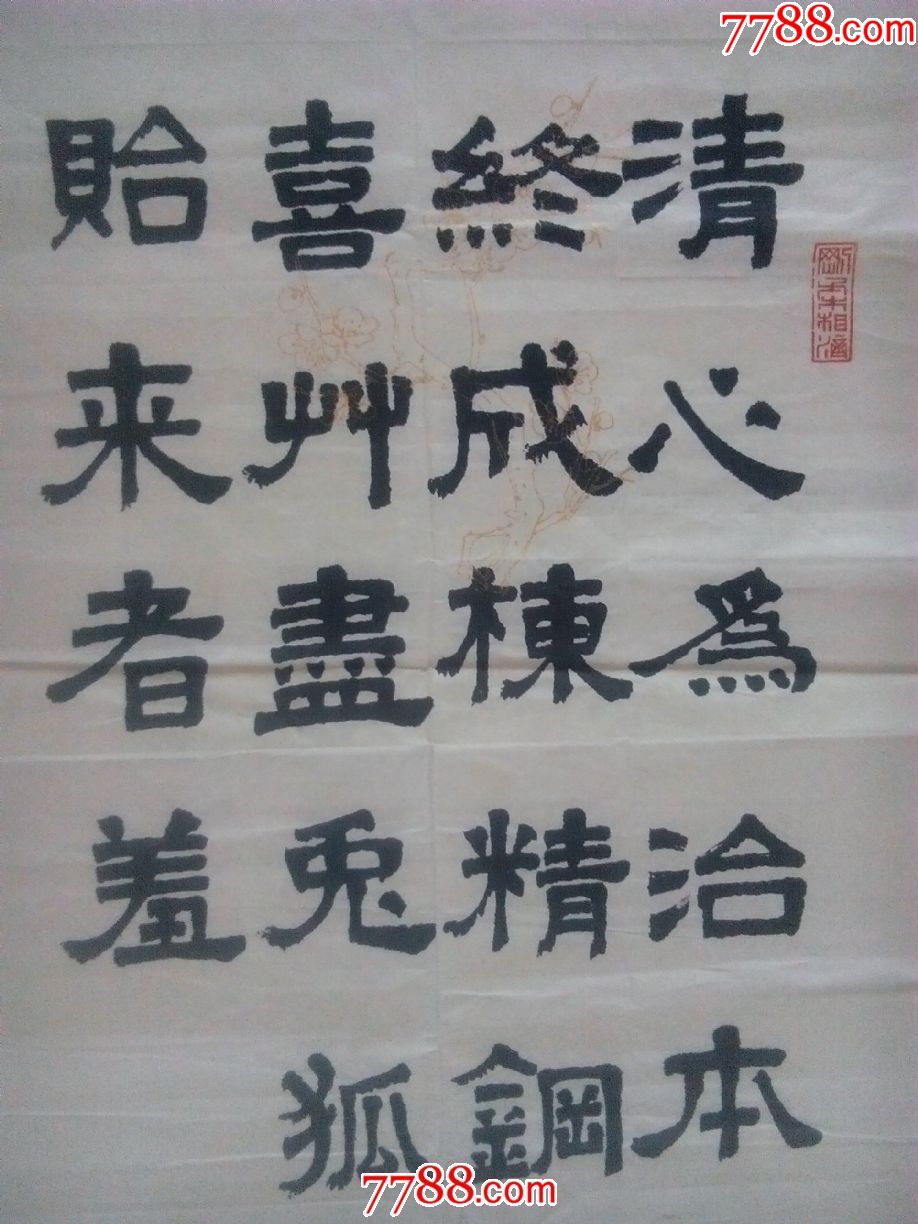 清心為治本
終成棟精鋼
喜艸盡兎狐
貽来者羞
剛柔相濟
7788.com
7788.com